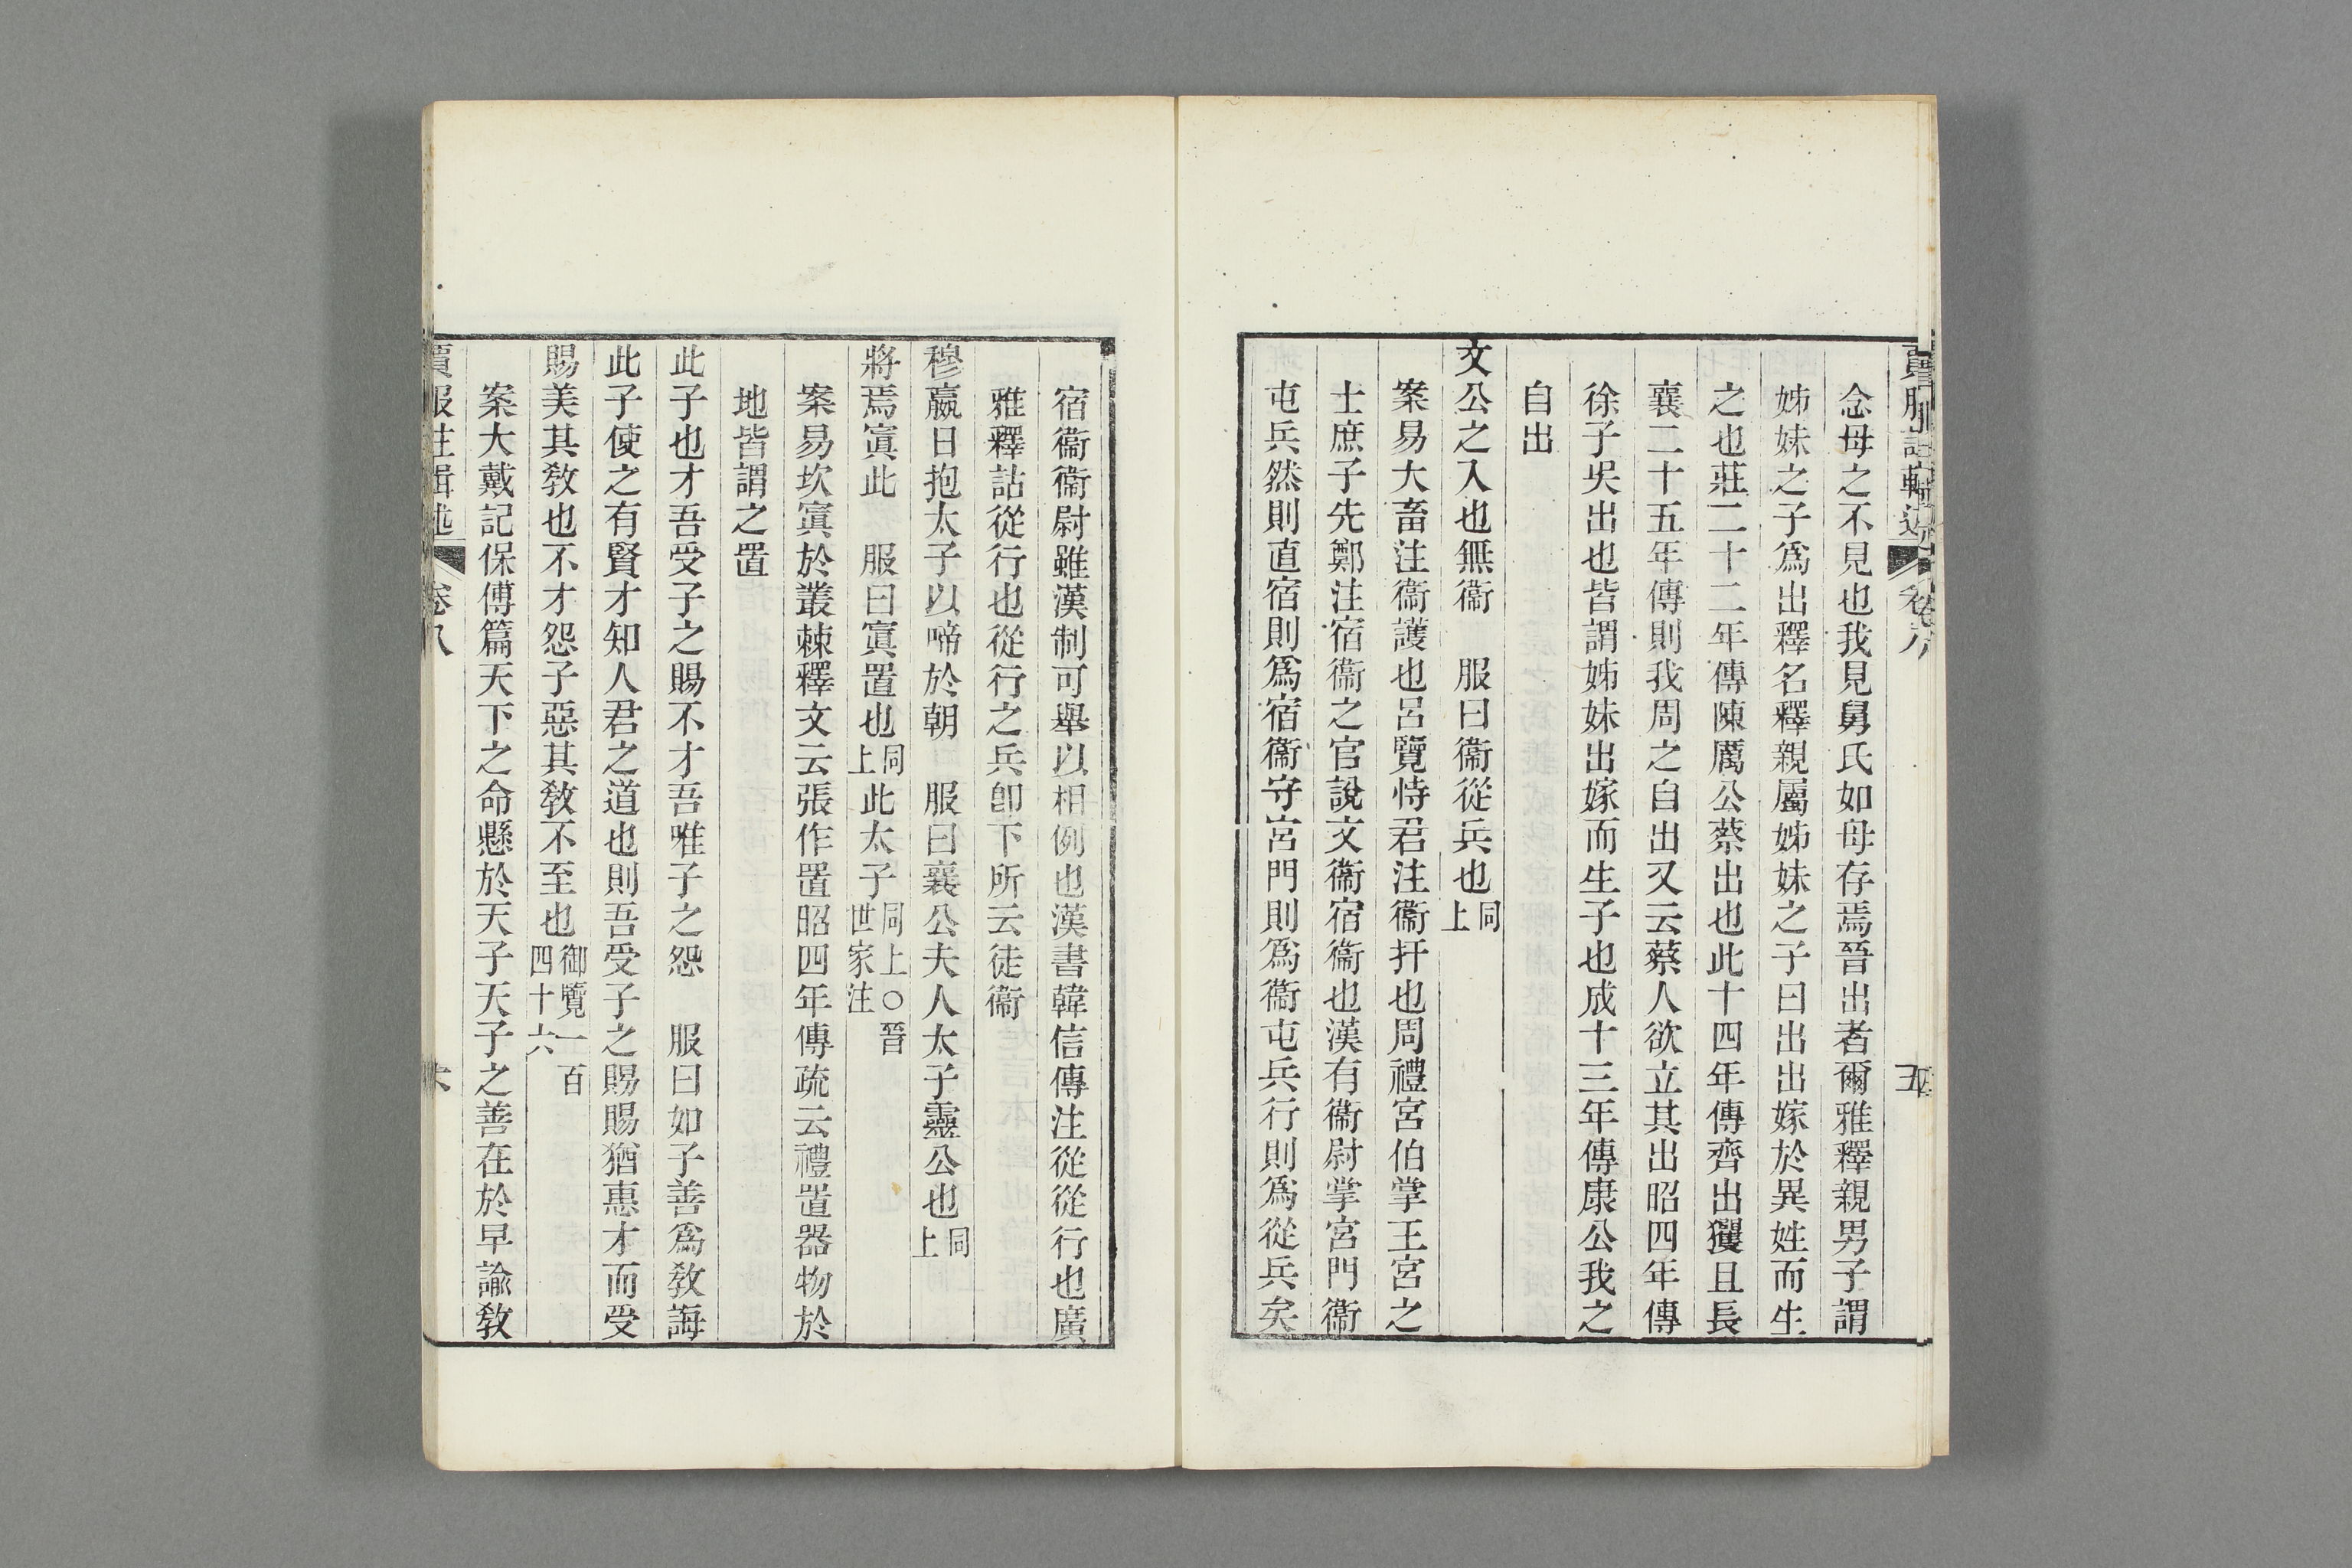 念母之不見也我見舅氏如母存焉晉出者爾雅釋親男子謂
姊妹之子爲出釋名釋親屬姊妹之子曰出出嫁於異姓而生
之也莊二十二年傳陳厲公蔡出也此十四年傳齊出玃且長
襄二十五年傳則我周之自出又云蔡人欲立其出昭四年傳
徐子吳出也皆謂姊妹出嫁而生子也成十三年傳康公我之
自出
文公之入也無衞　服曰衞從兵也同上
案易大畜注衞護也呂覽恃君注衞扞也周禮宮伯掌王宮之
士庶子先鄭注宿衞之官說文衞宿衞也漢有衞尉掌宮門衞
屯兵然則直宿則爲宿衞守宮門則爲衞屯兵行則爲從兵矣
宿衞衞尉雖漢制可舉以相例也漢書韓信傳注從從行也廣
雅釋詁從行也從行之兵卽下所云徒衞
穆嬴日抱太子以啼於朝　服曰襄公夫人太子靈公也同上
將焉寘此　服曰寘置也同上此太子同上○晉世家注
案易坎寘於叢棘釋文云張作置昭四年傳疏云禮置器物於
地皆謂之置
此子也才吾受子之賜不才吾唯子之怨　服曰如子善爲敎誨
此子使之有賢才知人君之道也則吾受子之賜賜猶惠才而受
賜美其敎也不才怨子惡其敎不至也御覽一百四十六
案大戴記保傅篇天下之命懸於天子天子之善在於早諭敎
賈服注輯述　卷八　六